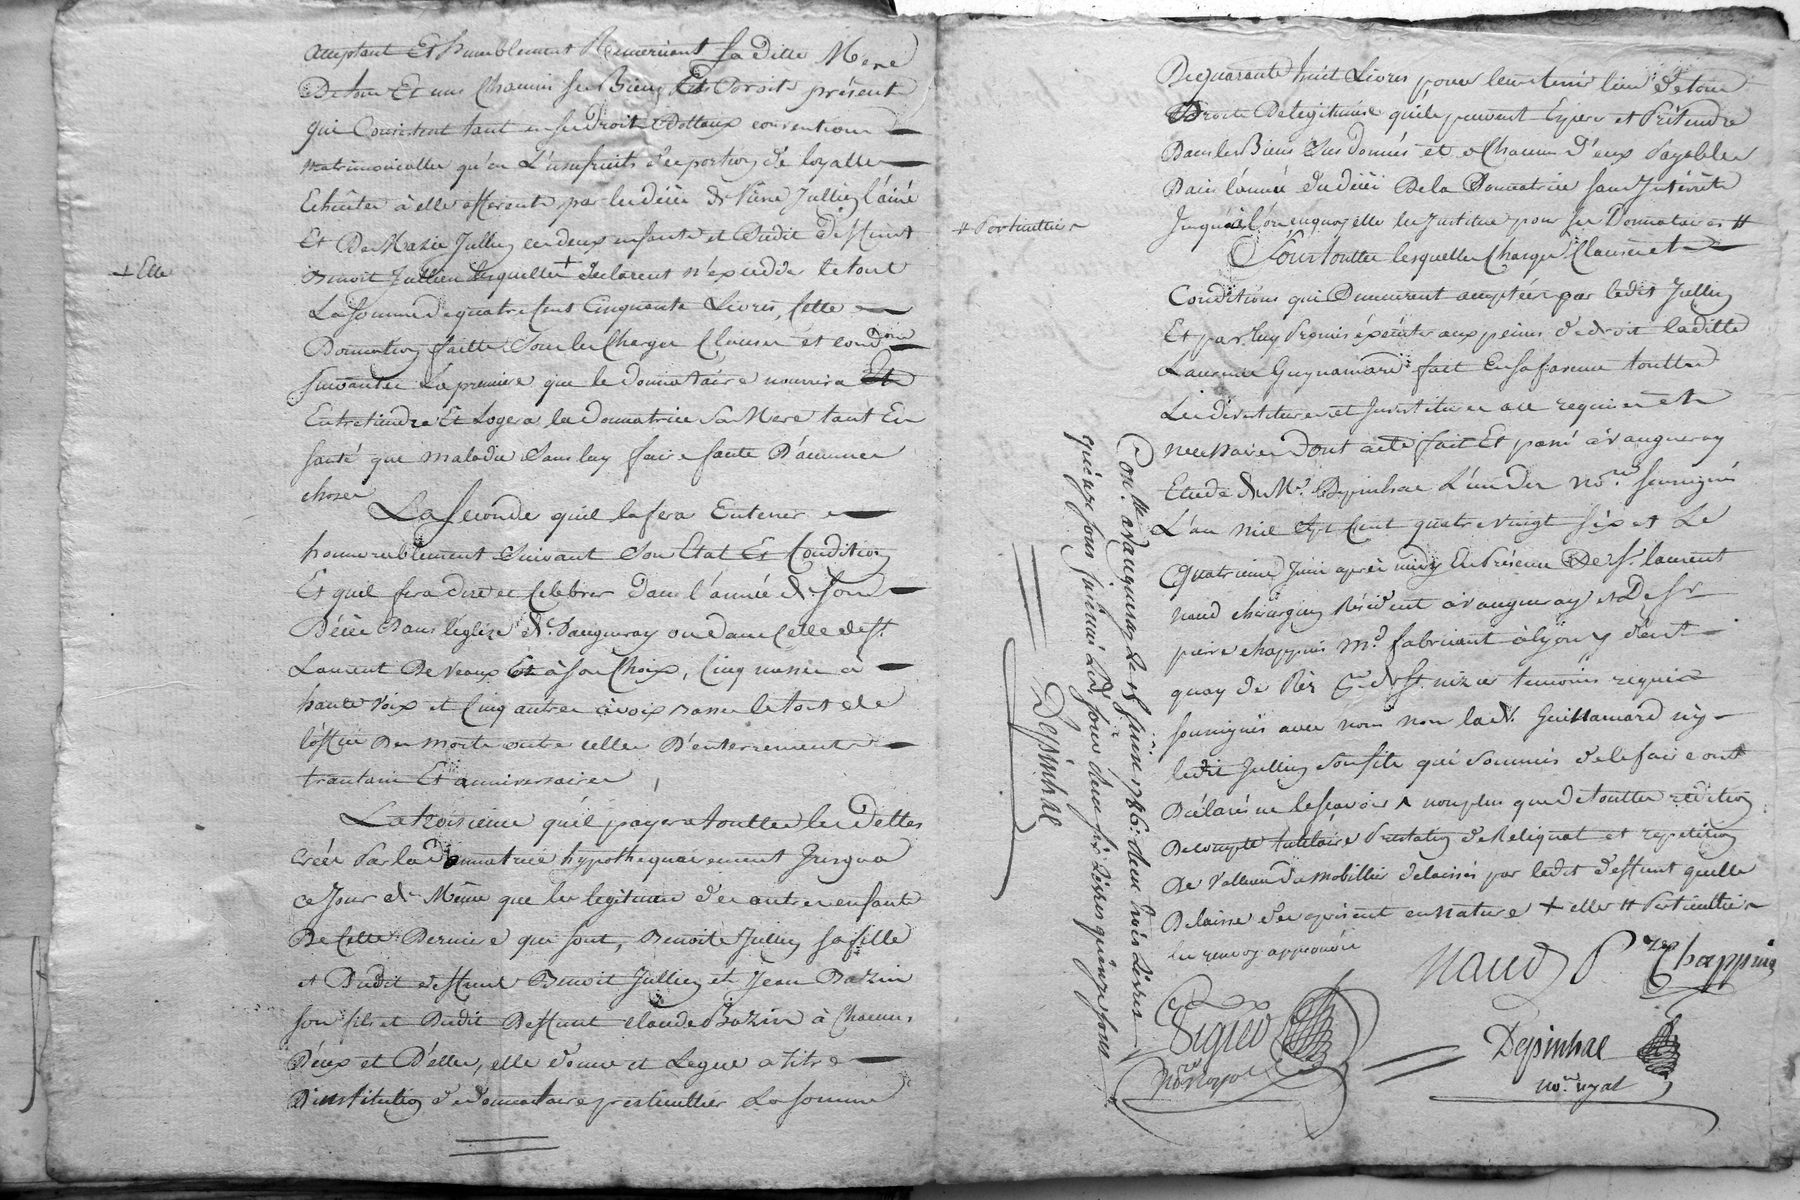 acceptant Et humblement Remerciant sa ditte Mere
De tous Et uns Chacuns ses Biens Et Droits présent
qui Consistent tant en ses droits Dottaux conventions
matrimonialles qu'en L'usufruits des portions de loyalles
Echûtes à elle afferante par le décès de Pierre Jullien l'aîné
Et De Marie Jullien ses deux enfants et Dudit deffunt
+ Elle
Benoit Jullien lesquelles + declarent n'exceder le tout
La somme de quatre Cens Cinquante Livres, Cette
Donnation faitte Sous les Charges Clauses et cond.ons
suivantes La premiere que le donnataire nourrira Et
Entretiendra Et Logera la donnatrice sa Mere tant En
santé que maladie Sans luy faire faute D'aucunes
choses
La Seconde qu'il la fera Enterrer
honnorablement Suivant Son Etat Et Condition
Et quil fera dire et Celebrer Dans l'année de son
Décès Dans l'église de Vaugneray ou dans Celle de St.
Laurent De Vaux à son Choix, Cinq messes à
haute voix et Cinq autres à voix basse le tout de
l'office Des morts outre celles D'enterrement
trantain Et anniversaires
La troisieme qu'il payera touttes les dettes
créés Par la Donnatrice hypothequairement Jusqu'a
ce Jour de Même que les legitimes des autres enfants
De Cette Derniere qui sont, Benoite Jullien sa fille
et Dudit deffunt Benoit Jullien et Jean Bazin
son fils et Dudit Deffunt Claude Bazin à Chacuns
D'eux et D'elles, elle donne et Legue a titre
D'institution de donnataire particullier La somme
De quarante huit Livres pour leur tenir lieu de tous
Droits De legitimes qu'ils peuvent Esperer et Prétendre
Dans les Biens Sus Donnés et à Chacun d'eux Payables
Dans l'année du décès De la Donnatrice sans Intérêts
# Particulliers
Jusqu'alors enquoy elle les Institue pour ses Donnataires #
Sous touttes lesquelles Charges Clauses et
Conditions qui Demeurent acceptées par ledit Jullien
Et par luy Promis éxécuter aux peines de droit laditte
Laurence Guynamard fait En sa faveur touttes
Les devestitures et Investitures au requises et
necessaires Dont acte fait Et passé à vaugneray
Etude de Me. Depinhac L'un des nores. soussignés
L'an mil Sept Cent quatre vingt six et Le
Quatrieme Juin après midy En Présence De Sr. laurent
naud chirurgien Résident à vaugneray et De Sr
pierre chappuis md. fabricant à lyon y demt
quay de Retz Pse. de St. nizier temoins requis
soussignés avec nous non lade. Guillamard ny
ledit Jullien Son fils qui Sommés de le faire ont
Déclarés ne le scavoir nonplus que de touttes reddition
De compte tutelaire Prestation de Reliquat et repetition
De Valleur du mobillier delaissés par ledit deffunt quelle
Delaisse des aprésent en nature + elle # Particulliers
les renvoys approuvés
Naud
Pre Chappuis
Pignard
nore. royal
Depinhac
nore. royal
Con.lle à vaugneray le 18 juin 1786. deux trois Livres
quinze sous
Depinhac